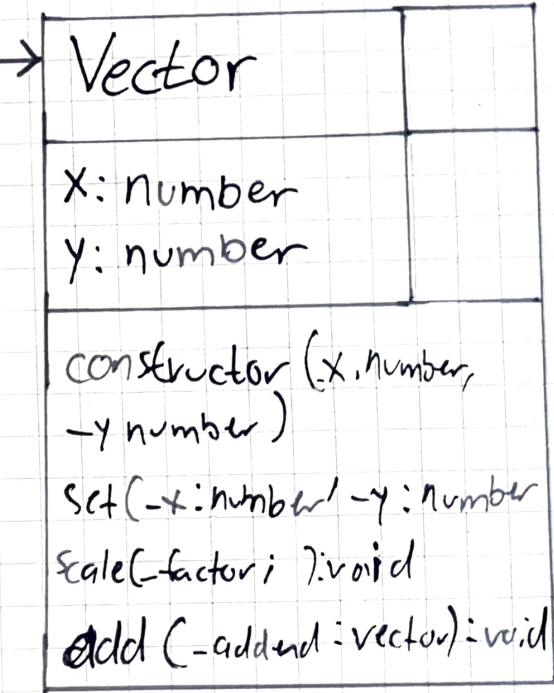 Vector
x: number
y: number
constructor (_x. number,
_y number)
set(_x: number, _y: number
scale(_factor; ):void
add (_addend: vector): void